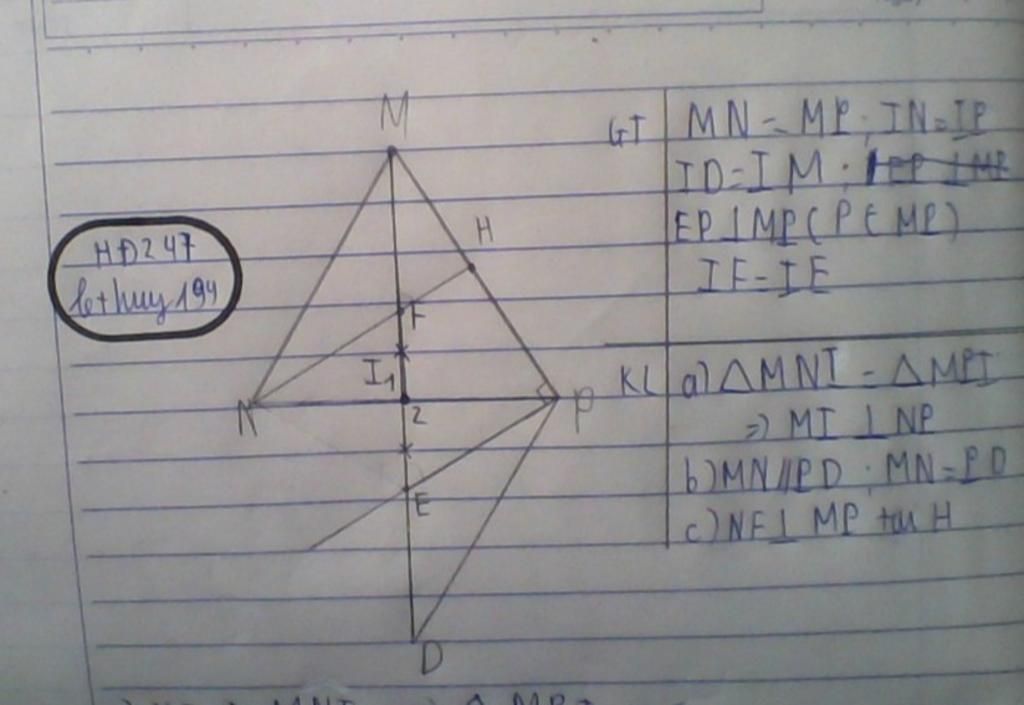 M
GT MN = MP; IN = IP
ID = IM;
H
EP ⊥ MP (P ∈ MP)
HĐ247
lethuy194
IF = IE
F
I 1
KL a) △MNI = △MPI
N 2 P
=> MI ⊥ NP
b) MN // PD; MN = PD
E
c) NF ⊥ MP tại H
D